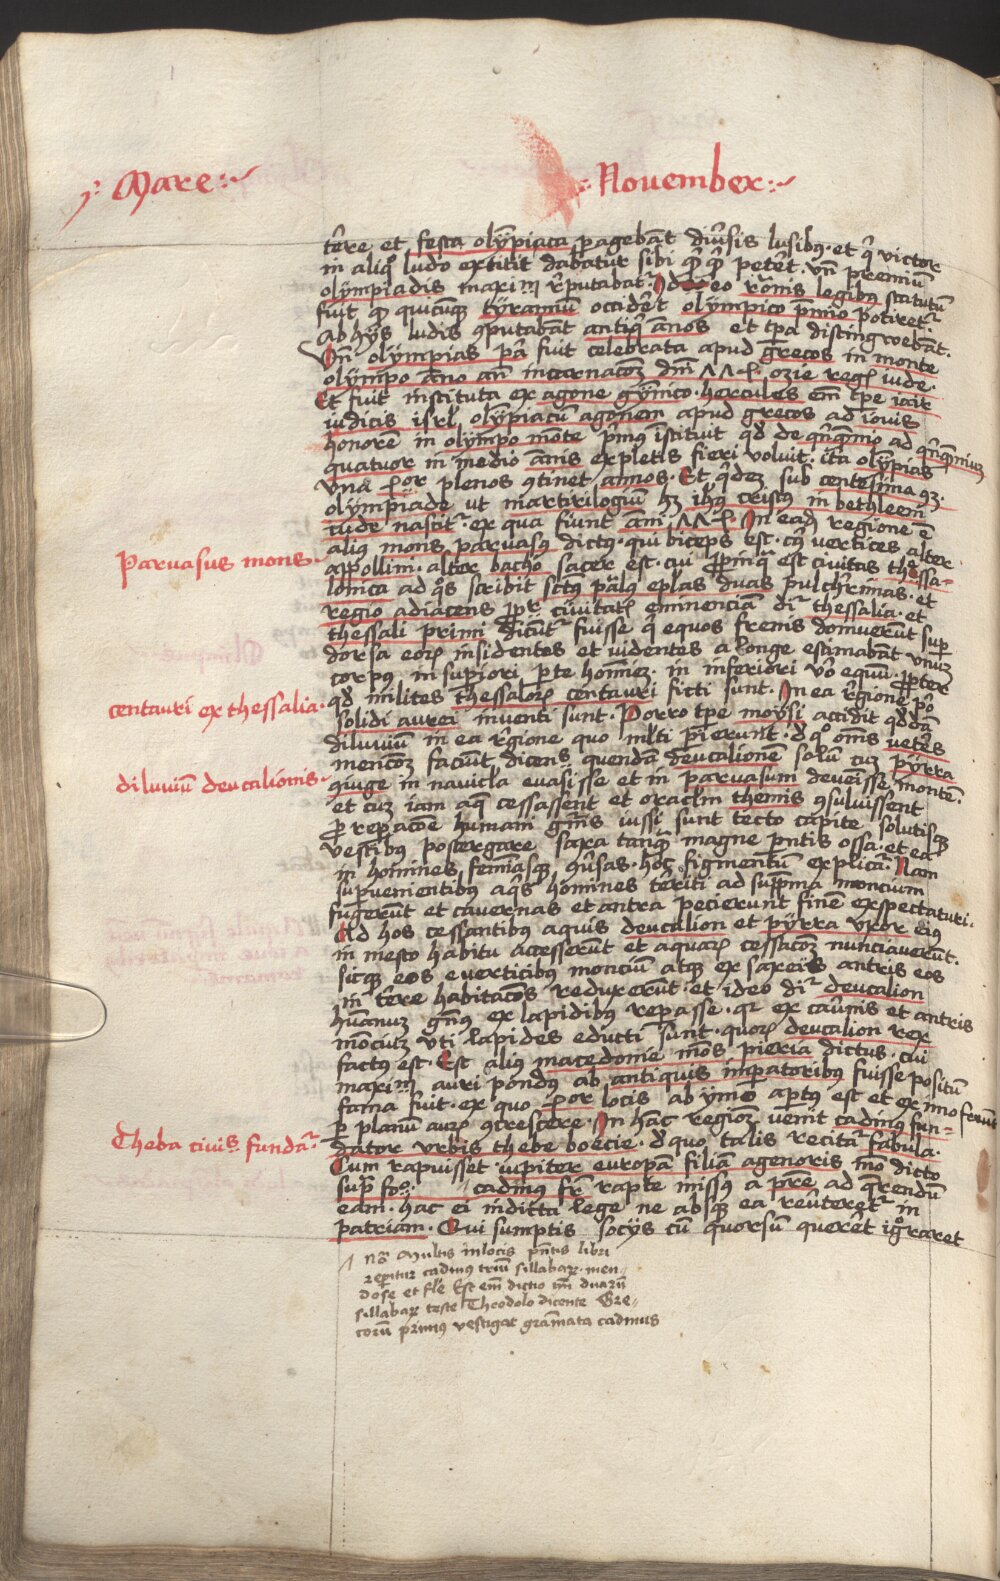 Mare
November
tere et festa olympiaca pagebāt diūsis lusibus et q̄ victor
in aliquo ludo extitit dabatur sibi petēt vn̄ premiū
olympiadis maxim̄ reputabat͛ eo rōnis legibus statutū
fuit quicumque tyrannū occidet olympico p̄mio potiret͛
Ab hys ludis putabāt antiq̄ annos et tp̄a distingwebāt
Vn̄ olympias p̄a fuit celebrata apud grecos in monte
olympo anno an̄ incarnacōꝫ dm̄ ozie regis iude
Et fuit instituta ex agone gymnico hercules em̄ tp̄e iair
iudicis isrl olympiacū agonem apud grecos ad iouis
honorē in olympo mōte p̄mus īstituit qd̄ de ad
quatuor in medio annis expletis fieri voluit ita olympias
vna plenos ꝯtinet annos Et sub centesima
olympiade ut martirilogiū hꝫ ihus cristus in bethleem
iude nascit͛ ex qua fiunt anni In ead regione ē
alius mons parnasus dictus qui biceps est cuius vertices alter
appollini alter bacho sacer est cui ꝓpinqua est ciuitas thessa-
lonica ad q̊s scribit sctūs paulus eplas duas pulchrimas et
regio adiacens ꝓpter ciuitatis eminenciā dr̄ thessalia et
thessali primi dicūt͛ fuisse q̄ equos frenis domuerūt sup
dorsa eoꝝ insidentes et videntes a longe estimabāt vnum
corpus in supiori pte hominē in inferiori vo equū ꝓpter
qd̄ milites thessaloꝝ centauri ficti sunt In ea regione p̄o
solidi aurei inventi sunt Porro tpe moysi accidit qddā
diluuiū in ea regione quo mlti perierunt d quo om̄s vetēs
mencōꝫ faciūt dicens quendā deucalionē solū cuꝫ pyrra
ꝯiuge in nauicla euasisse et in parnasum deuenisse montē
et cuꝫ iam aque cessassent et oraclm themis ꝯsuluissent
ꝓ repacōe humani gn̄is iussi sunt tecto capite solutisque
vestibus postergare saxa tanquam magne pntis ossa et ea
in homines feminasque ꝯuersas hoc figmentum explicat͛ Nam
supuenientibus aquis homines territi ad suprema moncium
fugerūt et cauernas et antra pecierunt finē expectaturi
Ad hos cessantibus aquis deucalion et pyrra vxor eius
in mesto habitu accesserūt et aquaꝝ cessacōꝫ nunciauerūt
sicque eos e verticibus monciū atque ex saxeis antris eos
in terre habitacōs reduxerūt et ideo dr̄ deucalion
hūanum gn̄us ex lapidibus repasse qr ex cauernis et antris
mōciū vti lapides educti sunt quoꝝ deucalion rex
factus est Est alius macedonie mōs pieria dictus cui
maxim̄ auri pondus ab antiquis imperatoribus fuisse positū
fama fuit ex quo locis ab ymo aptus est et ex imo ferūt
p planū auꝝ ꝯcrescere In hāc regionē venit cadmus fun-
dator vrbis thebe boecie d quo talis recitat͛ fabula
Cum rapuisset iupiter europā filiā agenoris mō dicto
supra fo: cadmus fr̄ rapte missus a p̄re ad q̄rendū
eam hac ei indicta lege ne absque ea reūteret͛ in
patriam Qui sumptis socys cū quorsū querēt igoraret
Parnasus mons
centauri ex thessalia
diluuiū deucalionis
Theba ciuis fundat͛
No multis in locis pn̄tis libri
reperitur cadmus triū sillabaꝝ men-
dose et fle Est em̄ dictio tm̄ duaꝝ
sillabaꝝ teste Theodolo dicente Gre-
corū primus vestigat gramata cadmus